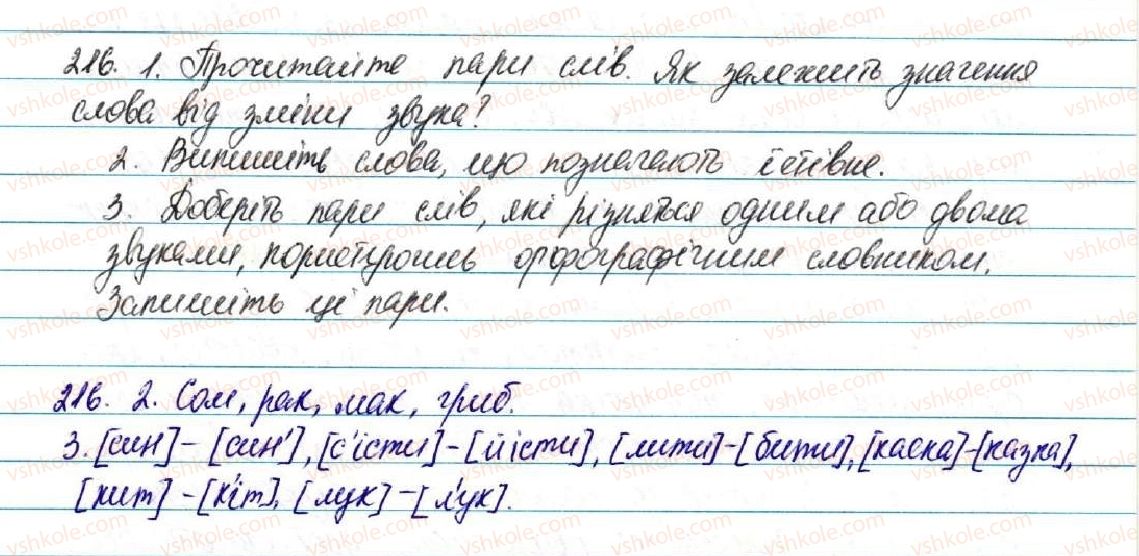 216. 1. Прочитайте пари слів. Як залежить значення
слова від зміни звука?
2. Випишіть слова, що позначають їстівне.
3. Доберіть пари слів, які різняться одним або двома
звуками, користуючись орфографічним словником.
Запишіть ці пари.
216. 2. Сом, рак, мак, гриб.
3. [син] – [син'], [с'їсти] – [йісти], [лити] – [бити], [каска] – [казка],
[кит] – [к'іт], [лук] – [л'ук].